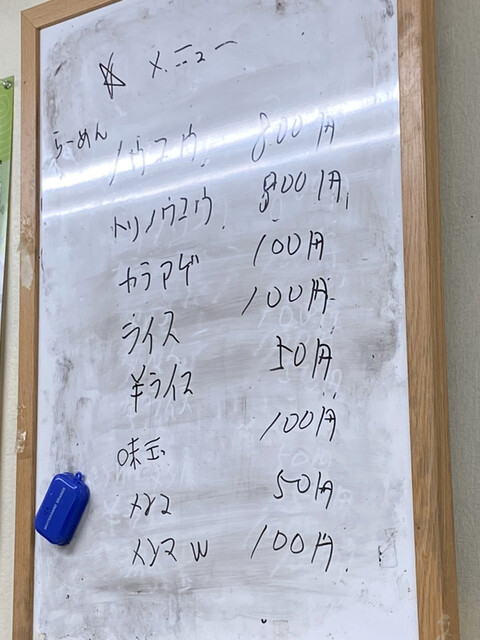 ☆ メニュー
らーめん
ノウコウ 800円
トリノウコウ 800円
カラアゲ 100円
ライス 100円
半ライス 50円
味玉 100円
メンマ 50円
メンマW 100円